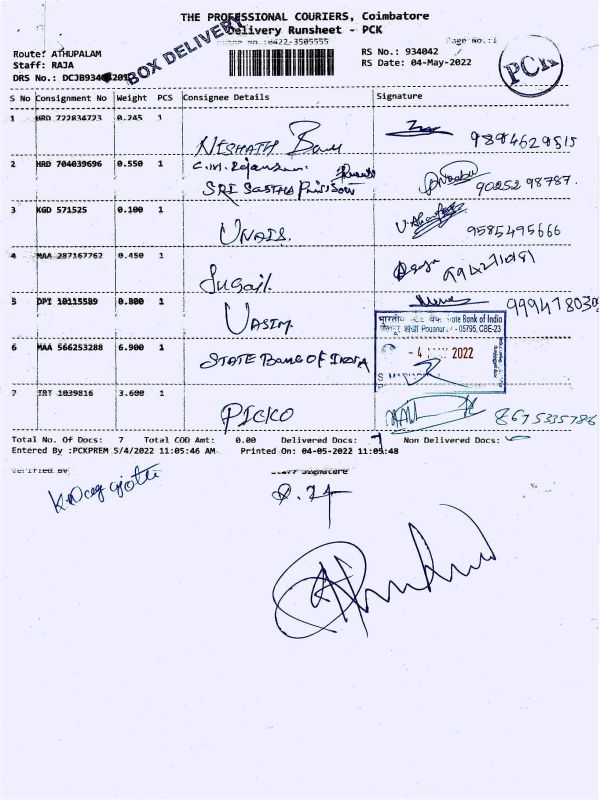 THE PROFESSIONAL COURIERS, Coimbatore
Delivery Runsheet - PCK
BOX DELIVERY
:0422-3505555
Page No.:1
Route: ATHUPALAM
RS No.: 934042
Staff: RAJA
RS Date: 04-May-2022
PCK
DRS No.:
S No Consignment No Weight PCS Consignee Details Signature
1 HRD 722834723 0.245 1
NISHATH Banu 9894629515
2 HRD 704039696 0.550 1
C.M. Rajan
SRI SASTHA 90252 98787.
3 KGD 571525 0.100 1
UNAIS. 9585495666
4 MAA 287167762 0.450 1
Sugail.
5 DPI 10115589 0.800 1
VASIM
भारतीय स्टेट बैंक State Bank of India
शाखा - 05795, CBE-23
6 MAA 566253288 6.900 1
STATE Bank OF INDIA
- 4 2022
7 TRT 1039816 3.600 1
PICKO 8675335786
Total No. Of Docs: 7 Total COD Amt: 0.00 Delivered Docs: 7 Non Delivered Docs:
Entered By :PCKPREM 5/4/2022 11:05:46 AM Printed On: 04-05-2022 11:05:48
Verified By Staff Signature